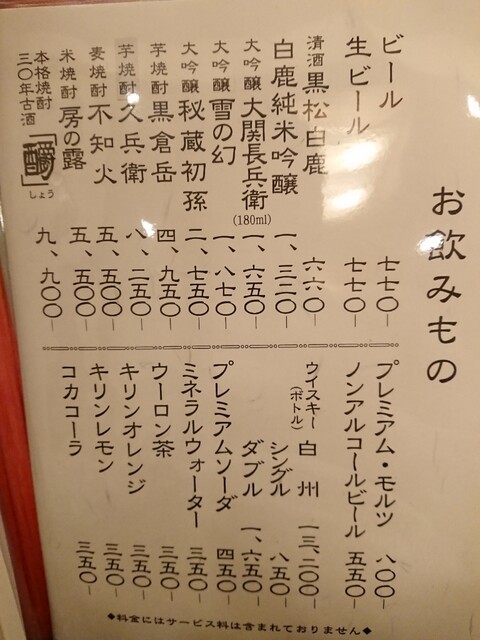 お飲みもの
ビール 七七〇―
生ビール 七七〇―
清酒 黒松白鹿 六六〇―
白鹿純米吟醸 一、三二〇―
大吟醸 大関長兵衛 (180ml) 一、六五〇―
大吟醸 雪の幻 一、八七〇―
大吟醸 秘蔵初孫 二、七五〇―
芋焼酎 黒倉岳 四、九五〇―
芋焼酎 久兵衛 八、二五〇―
麦焼酎 不知火 五、五〇〇―
米焼酎 房の露 五、五〇〇―
本格焼酎 三〇年古酒 「釂」 しょう 九、九〇〇―
プレミアム・モルツ 八〇〇―
ノンアルコールビール 五五〇―
ウイスキー (ボトル) 白州 一三、二〇〇―
シングル 八五〇―
ダブル 一、六五〇―
プレミアムソーダ 四五〇―
ミネラルウォーター 三五〇―
ウーロン茶 三五〇―
キリンオレンジ 三五〇―
キリンレモン 三五〇―
コカコーラ 三五〇―
◆料金にはサービス料は含まれておりません◆